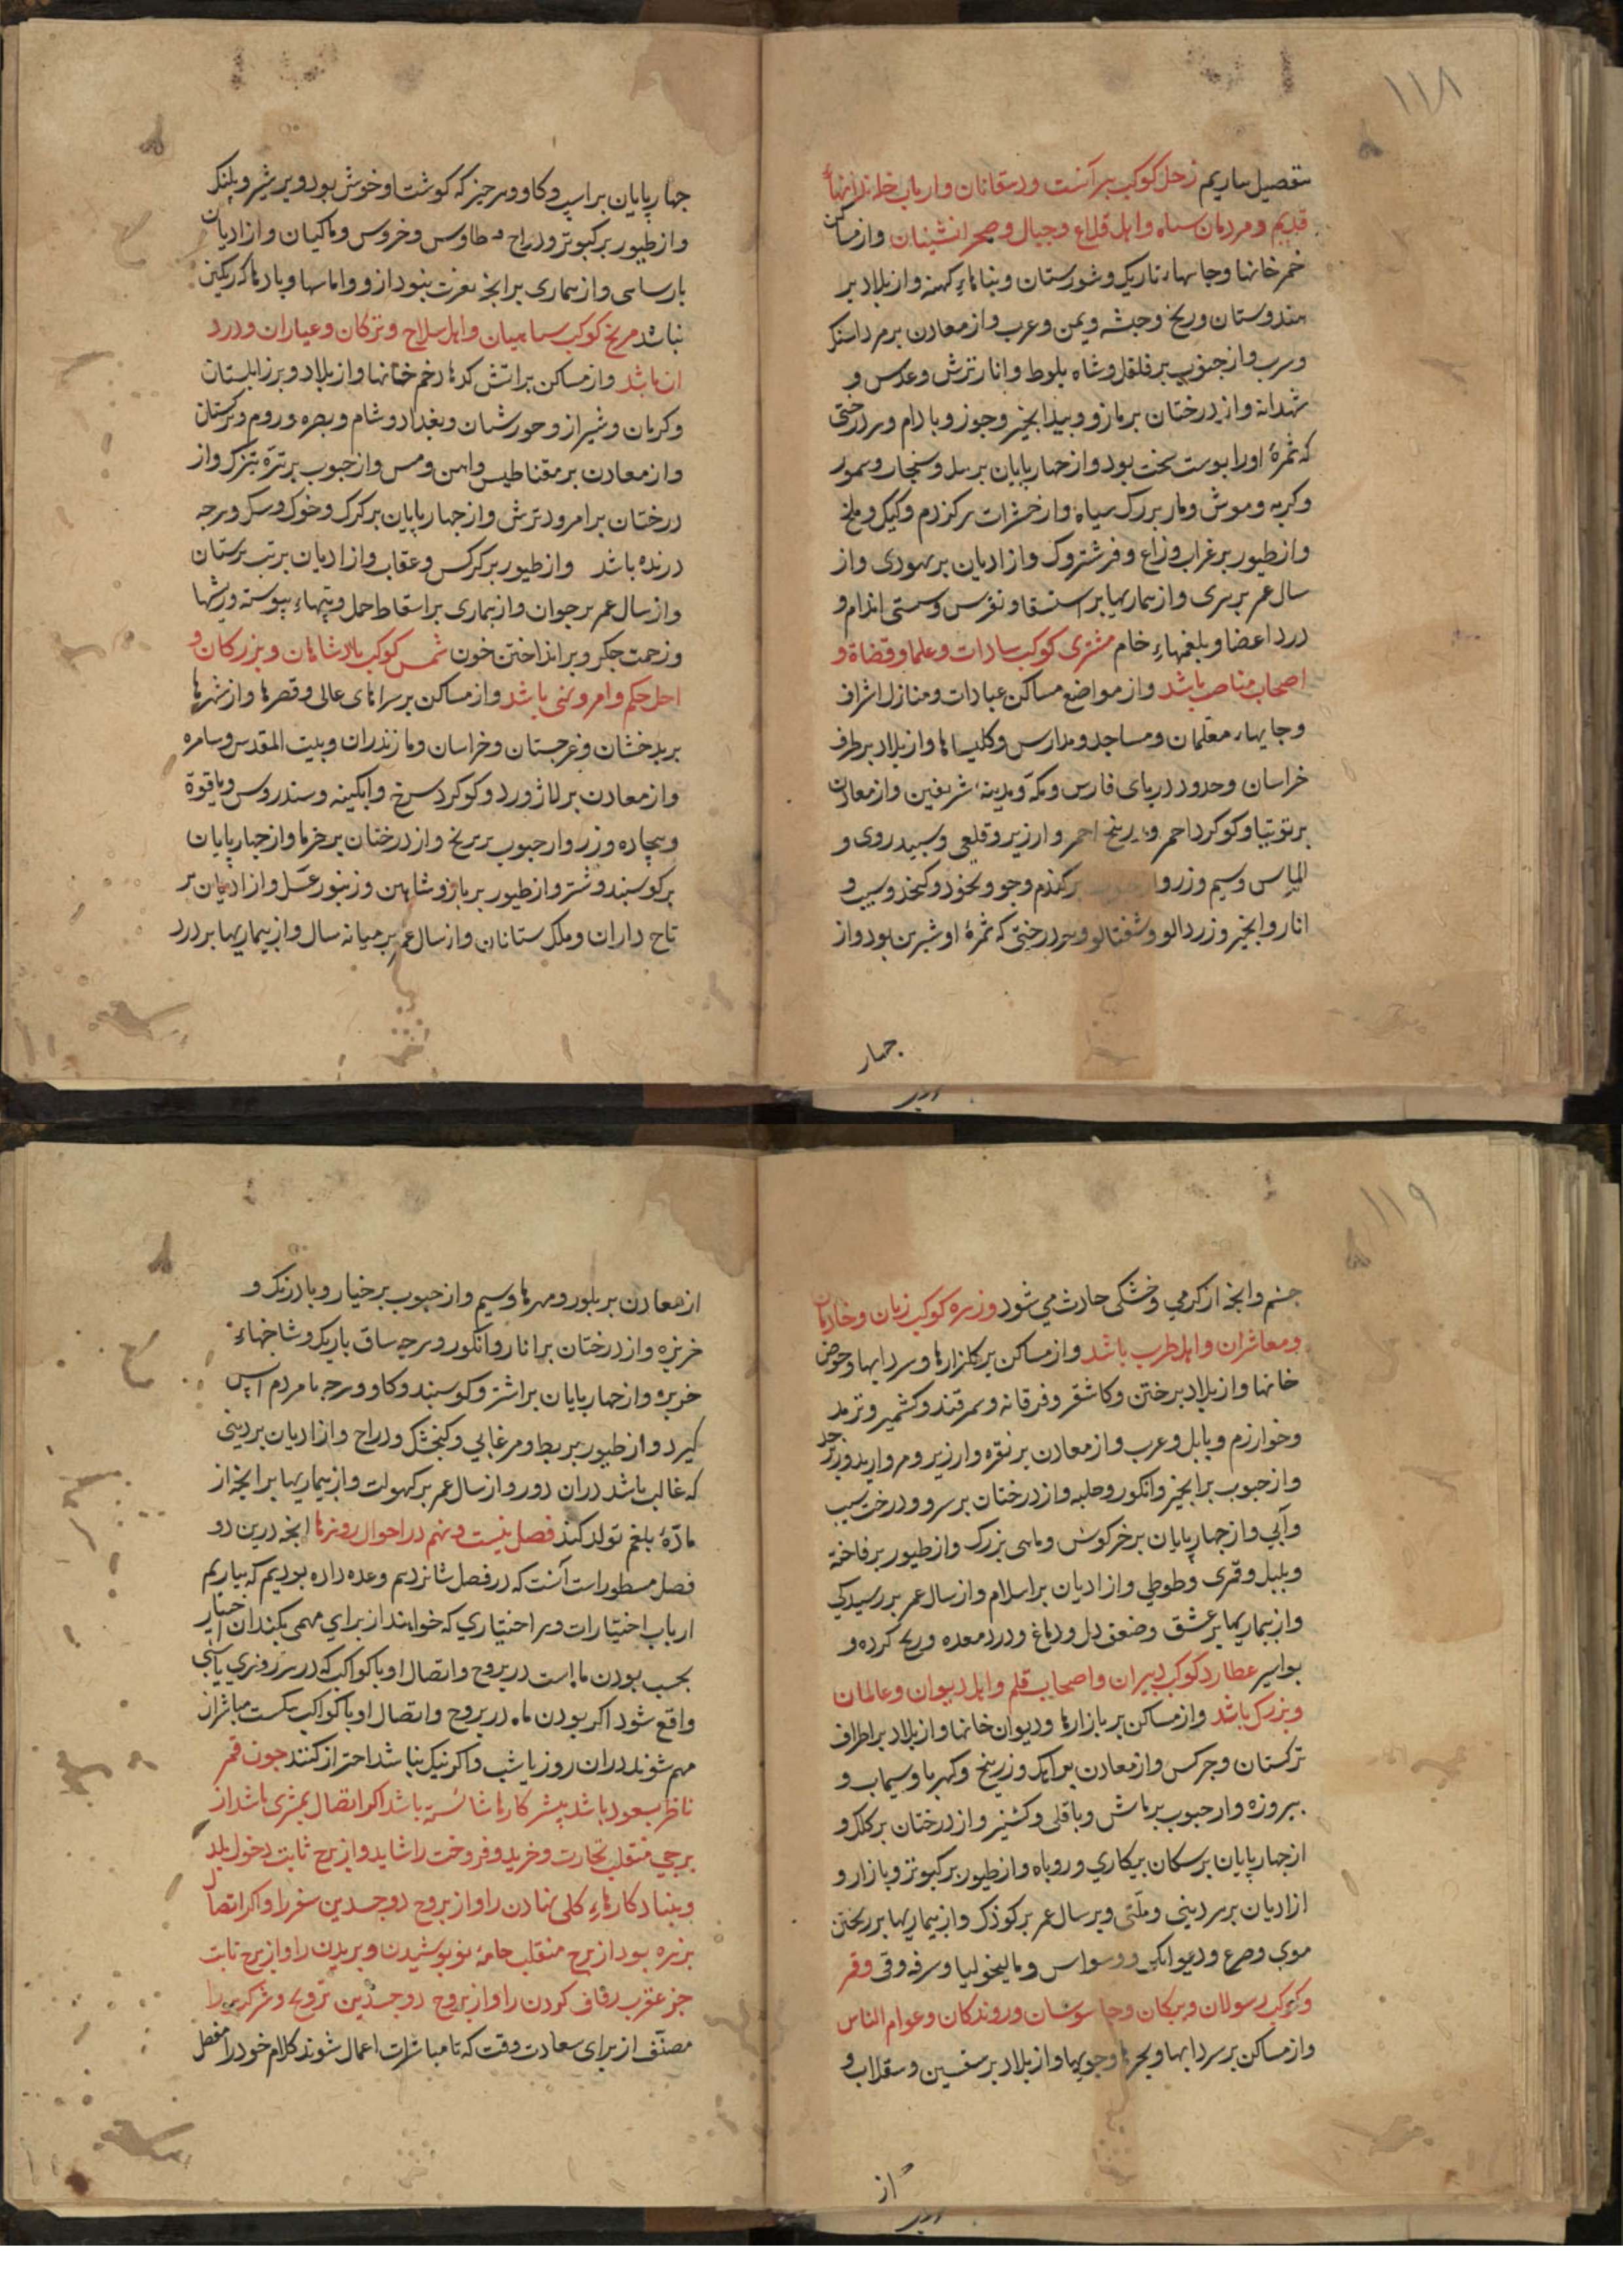 ۱۱۸
بتفصیل بیاریم زحل کوکب پیرآنست ودهقانان وارباب خاندانهاء
قدیم ومردمان سیاه واهل قلاع وجبال وصحرانشینان وازمساکن
خمرخانها وجایهاء تاریک وشورستان وبناهاءِ کهنه وازبلاد بر
هندوستان وزنج وحبشه ویمن وعرب وازمعادن برمرداسنک
وسرب وازحبوب برفلفل وشاه بلوط وانار ترش وعدس و
شهدانه وازدرختان برمازو وبیدانجیر وجوز وبادام وهردرختی
که ثمرهٔ اورا پوست سخت بود وازجهارپایان برپیل وسنجاب وسمور
وکربه وموش ومار بزرک سیاه وازحشرات برکژدم وکیک وملخ
وازطیور برغراب وزاغ وفرشتروک وازادیان بریهودی واز
سال عمر برپیری وازبیماریها براستسقا ونقرس وسستی اندام و
درد اعضا وبلغمهاءِ خام مشتری کوکب سادات وعلما وقضاة و
اصحاب مناصب باشد وازمواضع مساکن عبادات ومنازل اشراف
وجایهاء معلمان ومساجد ومدارس وکلیساها وازبلاد برطرف
خراسان وحدود دریای فارس ومکّه ومدینهٔ شریفین وازمعادن
برتوتیا وکوکرد احمر وزرنیخ احمر وارزیر وقلعی وسپیدروی و
الماس وسیم وزر واز حبوب برکندم وجو ونخود وکنجد وسیب و
انار وانجیر وزردالو وشفتالو وهردرختی که ثمرهٔ او شیرین بود واز
جهار
جهارپایان براسپ وکاو وهرجیز که کوشت او خوش بود وبرشیر وپلنک
وازطیور برکبوتر ودراج وطاوس وخروس وماکیان وازادیان
بارسایی وازبیماری برانجه نفرت بنود از و واماسها وبادها که ریکین
نباشد مریخ کوکب سپاهیان واهل سلاح وترکان وعیاران ودزد
ان باشد وازمساکن براتش کدها خم خانها وازبلاد وبرزابلستان
وکرمان وشیراز وخورستان وبغداد وشام وبصره وروم وترکستان
وازمعادن برمقناطیس واهن ومس وازحبوب برتره تیزک واز
درختان برامرود ترش وازجهارپایان برکرک وخوک وسک وهرجه
درنده باشد وازطیور برکرکس وعقاب وازادیان بربت پرستان
وازسال عمر برجوان وازبیماری براسقاط حمل وتبهاء پیوسته وریشها
وزحمت جکر وبرانداختن خون شمس کوکب پادشاهان وبزرکان و
اهل حکم وامر ونهی باشد وازمساکن برسراهای عالی وقصرها وازشهرها
بربدخشان وغرجستان وخراسان ومازندران وبیت المقدس وسامره
وازمعادن برلاژورد وکوکرد سرخ وابکینه وسندروس ویاقوة
وبیجاده وزر وازحبوب بربرنج وازدرختان برخرما وازجهارپایان
برکوسبند وشتر وازطیور برباز وشاهین وزنبور عسل وازادیان بر
تاج داران وملک ستانان وازسال عمر برمیانه سال وازبیماریها بردرد
۱۱۹
چشم وانجه ازکرمی وخشکی حادث می شود وزهره کوکب زنان وخادمان
ومعاشران واهل طرب باشد وازمساکن برکلزارها وسردابها وحوض
خانها وازبلاد برختن وکاشغر وفرقانه وسمرقند وکشمیر وترمد
وخوارزم وبابل وعرب وازمعادن برنقره وارزیر ومروارید وزبرجد
وازحبوب برانجیر وانکور وحلبه وازدرختان برسرو ودرخت سیب
وآبی وازجهارپایان برخرکوش وماهی بزرک وازطیور برفاخته
وبلبل وقمری وطوطی وازادیان براسلام وازسال عمر بررسیدکی
وازبیماریها برعشق وضعف دل ودماغ ودرد معده وریح کرده و
بواسیر عطارد کوکب دبیران واصحاب قلم واهل دیوان وعالمان
وبزرک باشد وازمساکن بربازارها ودیوان خانها وازبلاد براطراف
ترکستان وجرکس وازمعادن برآهک وزرنیخ وکهربا وسیماب و
بیروزه وازحبوب برماش وباقلی وکشنیز وازدرختان برکلک و
ازجهارپایان برسکان بیکاری وروباه وازطیور برکبوتر وبازار و
ازادیان برهردینی وملّتی وبرسال عمر برکوذک وازبیماریها برریختن
موی وصرع ودیوانکی ووسواس ومالیخولیا وسرفه وقی وقمر
وکوکب رسولان وپیکان وجاسوسان وروندکان وعوام الناس
وازمساکن برسردابها وبحرها وجویها وازبلاد برسقسین وسقلاب و
از
ازمعادن بربلور ومهرها وسیم وازحبوب برخیار وبادرنک و
خربزه وازدرختان برانار وانکور وهرجه ساق باریک وشاخهاء
خرد وازجهارپایان براشتر وکوسبند وکاو وهرجه با مردم انس
کیرد وازطیور بربط ومرغابی وکنجشک ودراج وازادیان بردینی
که غالب باشد دران دور وازسال عمر برکهولت وازبیماریها برانجه از
مادّهٔ بلغم تولد کند فصل بیست ونهم دراحوال روزها انجه درین دو
فصل مسطور است آنست که درفصل شانزدیم وعده داده بودیم که بیاریم
ارباب اختیارات وهراختیاری که خواهند از برای مهمی بکند ان اختیار
بحسب بودن ماهست دربروج واتصال او با کواکب که درهرروزی یا شبی
واقع شود اکر بودن ماه دربروج واتصال او با کواکب نیکست مباشر ان
مهم شوند دران روز یا شب واکرنیک نباشد احتراز کنند جون قمر
ناظر بسعود باشد بیشتر کارها شائسته باشد اکر اتصال بمشتری باشد از
برجی منقلب تجارت وخرید وفروخت را شاید وازبرج ثابت دخول بلد
وبنیاد کارهاءِ کلی نهادن را وازبروج دوجسدین سفر را واکراتصال
بزهره بود ازبرج منقلب جامهٔ نو پوشیدن وبریدن را وازبرج ثابت
جز عقرب زفاف کردن را وازبروج دوجسدین تزویج وشرکت را
مصنّف از برای سعادت وقت که تا مباشرت اعمال شوند کلام خود را مفصل